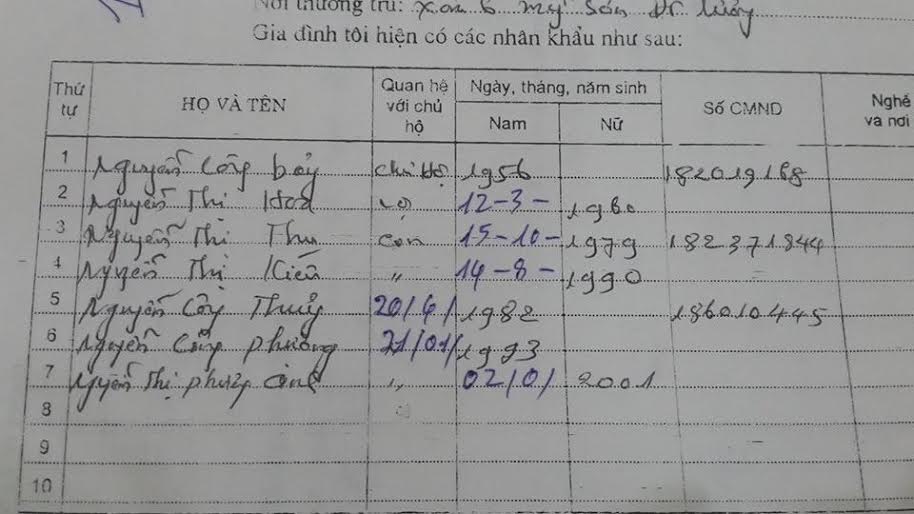 Nơi thường trú: xóm 6 mỹ Sơn Đt lương
Gia đình tôi hiện có các nhân khẩu như sau:
Thứ tự HỌ VÀ TÊN Quan hệ với chủ hộ Ngày, tháng, năm sinh Số CMND Nghề và nơi
Nam Nữ
1 Nguyễn Công bảy chủ hộ 1956 182019168
2 Nguyễn Thị Hoa vợ 12-3- 1960
3 Nguyễn Thị Thu con 15-10- 1979 182371844
4 Nguyễn Thị Kiều " 14-8- 1990
5 Nguyễn Công Thuỷ 20/6/ 1982 186010445
6 Nguyễn Công phương 21/01/ 1993
7 Nguyễn Thị phương " 02/01 2001
8
9
10